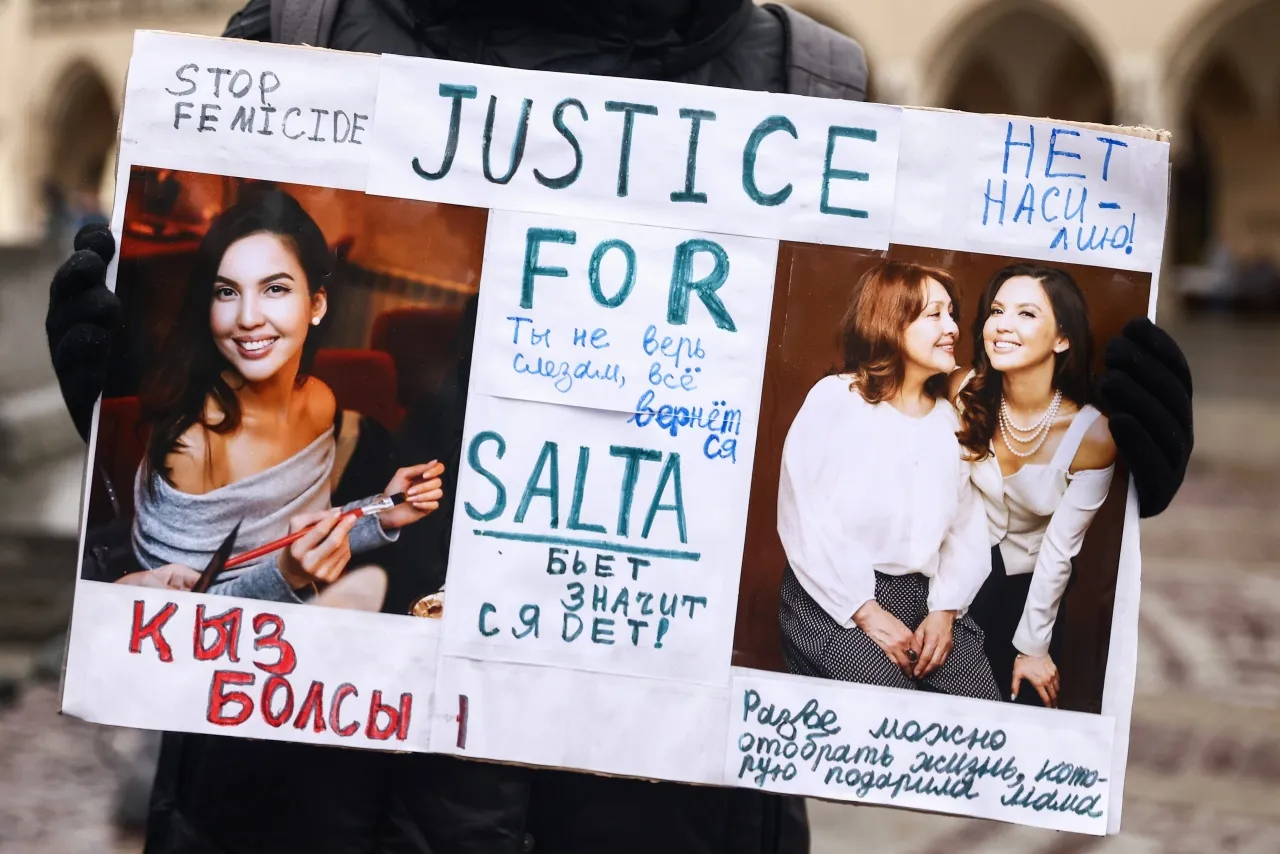 STOP
FEMICIDE
JUSTICE
НЕТ
НАСИ-
ЛИЮ!
FOR
Ты не верь
слезам, всё
вернёт
ся
SALTA
БЬЕТ
ЗНАЧИТ
СЯДЕТ!
ҚЫЗ
БОЛСЫ
Разве можно
отобрать жизнь, кото-
рую подарила мама